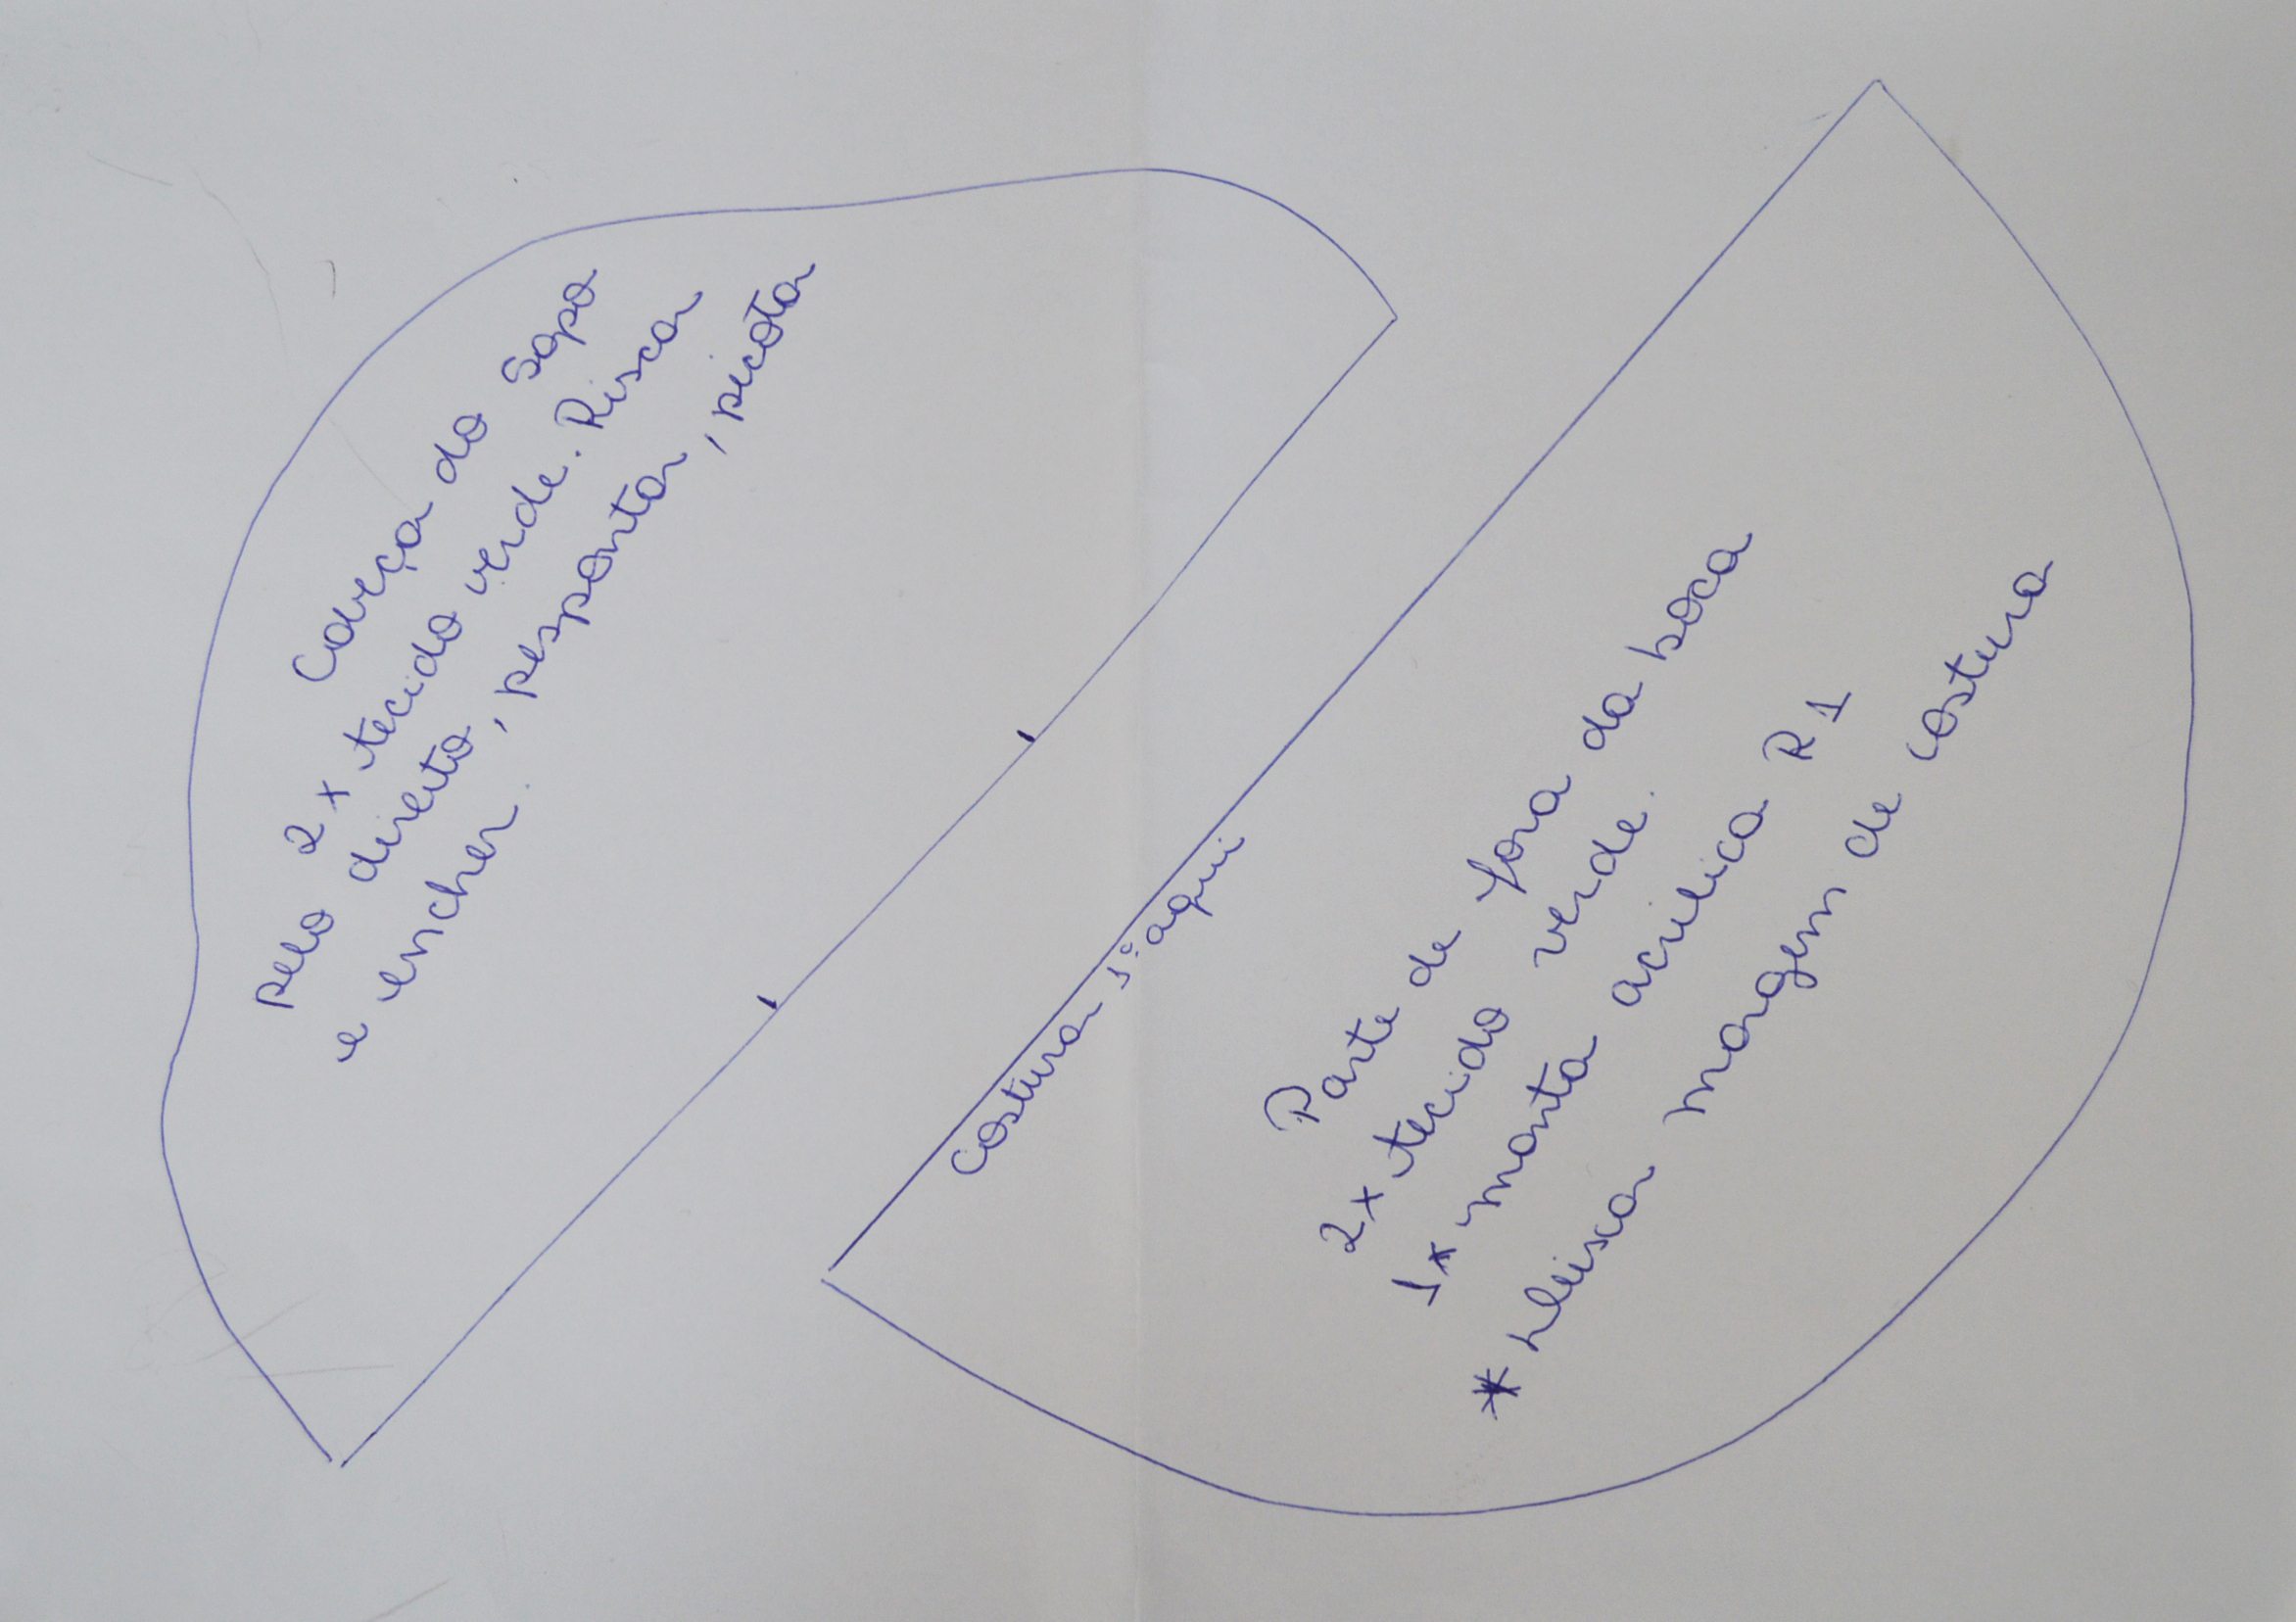 Cabeça do Sapo
2x tecido verde. Riscar
pelo direito, pespontar, picotar
e encher.
Costurar 1º aqui
Parte de fora da boca
2x tecido verde.
1x manta acrilica R1
* Riscar margem de costura